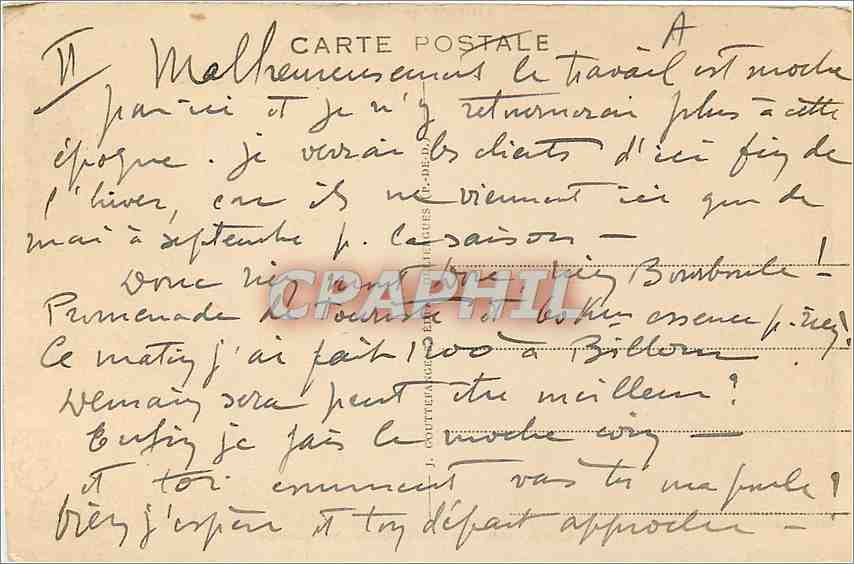 CARTE POSTALE
A
II Malheureusement le travail est moche
par ici et je n'y retournerai plus à cette
époque. je verrai les clients d'ici fin de
l'hiver, car ils ne viennent ici que de
mai à septembre p. la saison —
Donc rien Bourboule !
Promenade de touriste et les Km essence p. rien.
Ce matin j'ai fait 1200 à Billom
Demain sera peut être meilleur ?
Enfin je fais le moche coin —
et toi comment vas tu ma poule ?
bien j'espère et ton départ approche —
J. GOUTTEFANGEAS, ÉDIT. (P.-DE-D.)
CPAPHIL